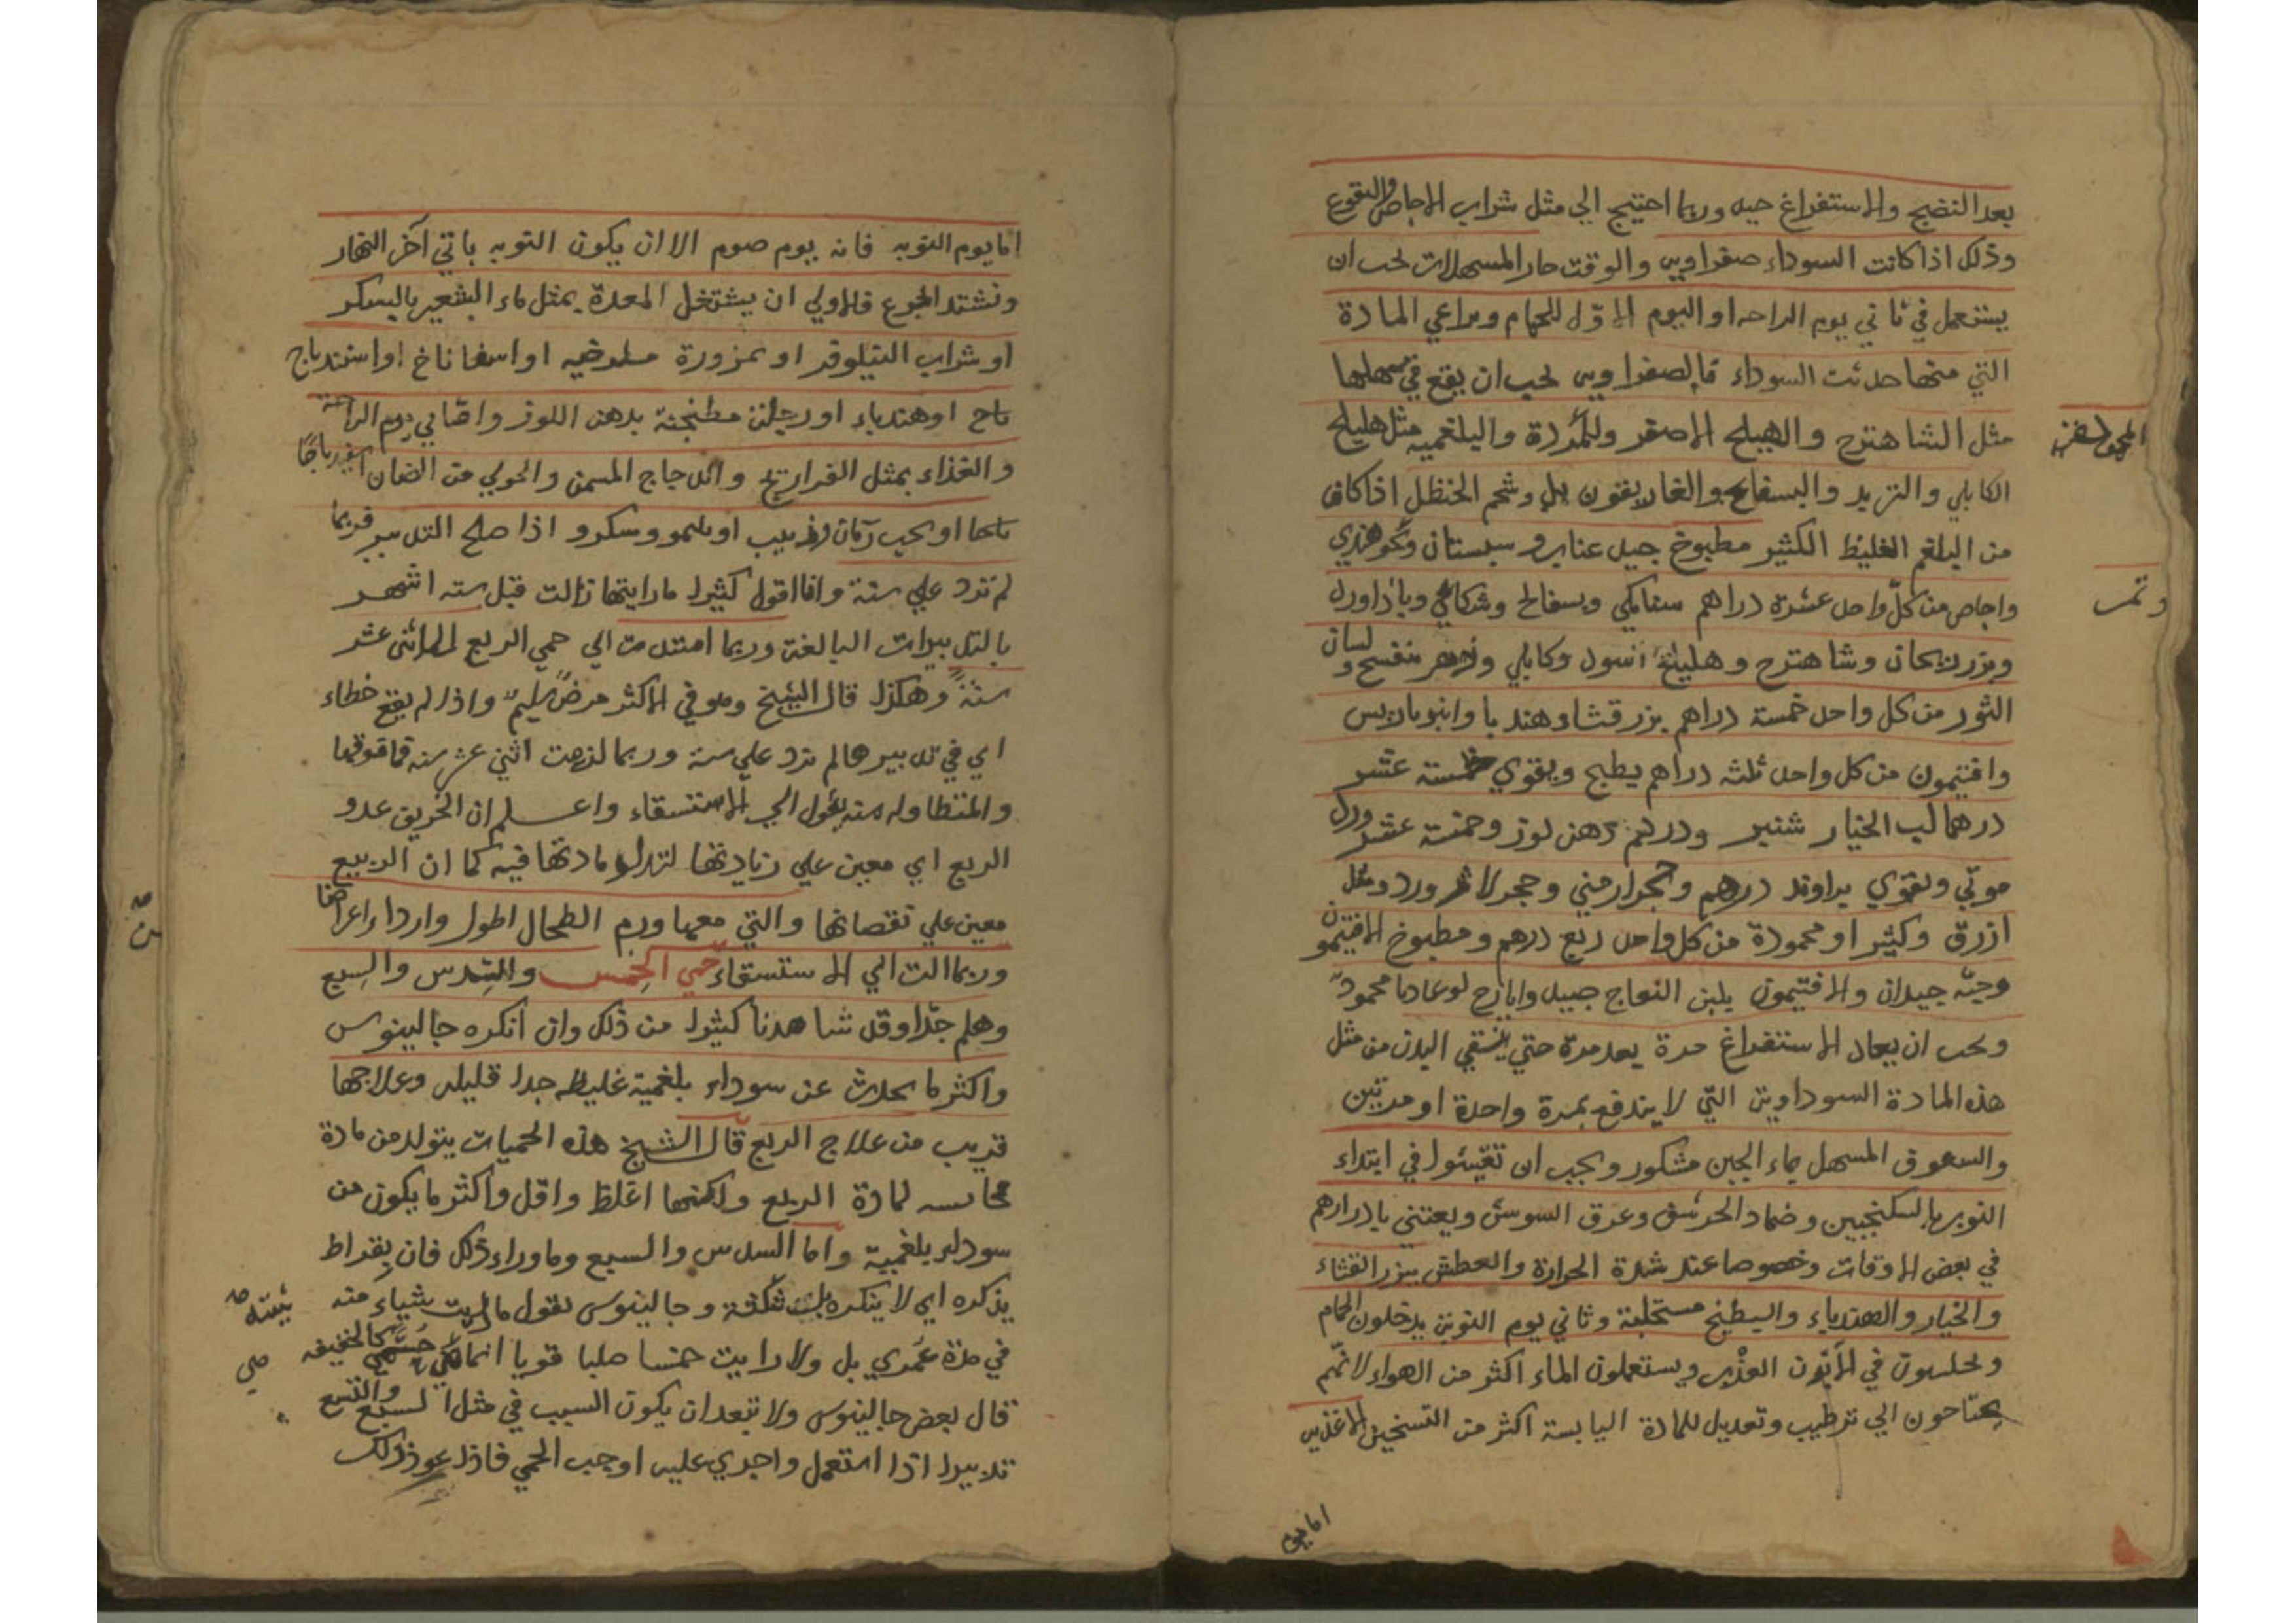 بعد النضج والاستفراغ جيد وربما احتيج الي مثل شراب الاجاص والنقوع
وذلك اذا كانت السوداء صفراويه والوقت حار المسهلات يجب ان
يستعمل في ثاني يوم الراحه او اليوم الاول للحمام ويراعي المادة
التي منها حدثت السوداء فالصفراويه يجب ان يقع في مسهلها
مثل الشاهترج والهيلج الاصفر والبلغميه مثل هليلج
الكابلي والتربد والبسفايج والغاريقون بل وشحم الحنظل اذا كان
من البلغم الغليظ الكثير مطبوخ جيد عناب وسبستان
وتمر
واجاص من كل واحد عشرة دراهم سنامكي وبسفايج
وشاهترج وكابلي وزهر بنفسج ولسان
الثور من كل واحد خمسة دراهم بزر قثا وهندبا وانبرباريس
وافتيمون من كل واحد ثلثه دراهم يطبخ ويقوي خمسته عشر
درهما لب الخيار شنبر ودرهم دهن لوز وخمسة عشر ورد
ويقوي براوند درهم وحجر ارمني وحجر ورد
ازرق وكثيرا ومحمودة من كل واحد ربع درهم ومطبوخ الافتيمون
وحبه جيدان والافتيمون بلبن النعاج جيد
ويجب ان يعاد الاستفراغ مرة بعد مرة حتي ينقي البدن من مثل
هذه المادة السوداويه التي لا يندفع بمرة واحدة او مرتين
والسعوق المسهل بماء الجبن مشكور ويجب ان تقيئوا في ابتداء
النوبه بالسكنجبين وضماد وعرق السوسن ويعتني بادرارهم
في بعض الاوقات وخصوصا عند شدة الحرارة والعطش ببزر القثاء
والخيار والهندباء والبطيخ مستحلبة وثاني يوم النوبة يدخلون الحمام
ويجلسون في ويستعملون الماء اكثر من الهواء لانهم
يحتاجون الي ترطيب وتعديل للمادة اليابسة اكثر من التسخين
اما يوم
اما يوم النوبه فانه يوم صوم الا ان يكون النوبه ياتي آخر النهار
ويشتد الجوع فالاولي ان يشتغل المعدة بمثل ماء الشعير بالسكر
او شراب النيلوفر او بمزورة او اسفاناخ
او هندباء او مطنجنة بدهن اللوز واما في يوم الراحة
والغذاء بمثل الفراريج والدجاج المسمن والحولي من الضان اسفيدباجا
او بحب رمان وزبيب او وسكر واذا صلح التدبير فربما
لم تزد علي سنة وانا اقول كثيرا ما رايتها زالت قبل سته اشهر
بالتدبيرات البالغة وربما امتدت الي حمي الربع الي اثني عشر
سنة وهكذا قال الشيخ وهو في الاكثر مرض سليم واذا لم يقع خطاء
اي في تدبيرها لم تزد علي سنة وربما لزمت اثني عشر سنه فما فوقها
والمتطاوله منه يؤول الي الاستسقاء واعلم ان الخريف عدو
الربع اي معين علي زيادتها لتولد مادتها فيه كما ان الربيع
معين علي نقصانها والتي معها ورم الطحال اطول وارداء اعراضا
وربما الت الي الاستسقاء حمي الخمس والسدس والسبع
وهلم جرا وقد شاهدنا كثيرا من ذلك وان انكره جالينوس
واكثر ما يحدث عن سوداء بلغمية غليظه جدا قليله وعلاجها
قريب من علاج الربع قال الشيخ هذه الحميات يتولد من مادة
مجانسه لمادة الربع ولكنها اغلظ واقل واكثر ما يكون من
سوداء بلغمية واما السدس والسبع وما وراء ذلك فان بقراط
يذكره اي لا ينكره وجالينوس يقول ما رايت شياء منه
في مدة عمري بل ولا رايت خمسا صلبا قويا انما كالخفيفه
قال بعض جالينوس ولا تبعد ان يكون السبب في مثل السبع والتسع
تدبيرا اذا استعمل واجري عليه اوجب الحمي فاذا عود ذلك